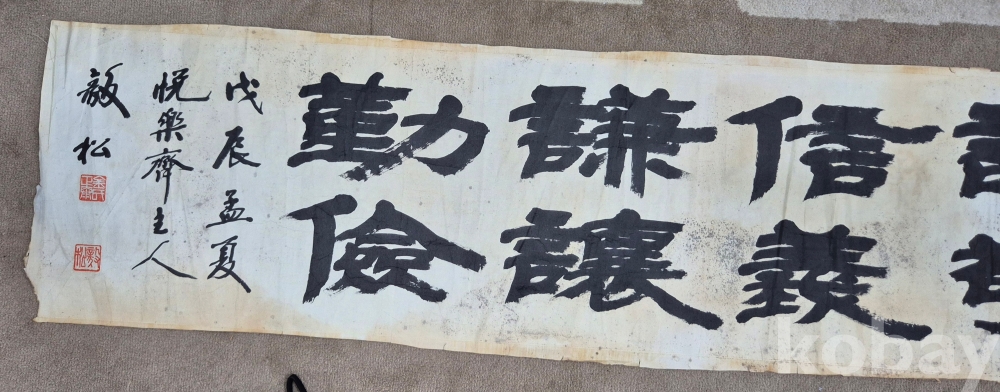 信義
謙讓
勤儉
戊辰孟夏
悅樂齊主人
毅松
kobay